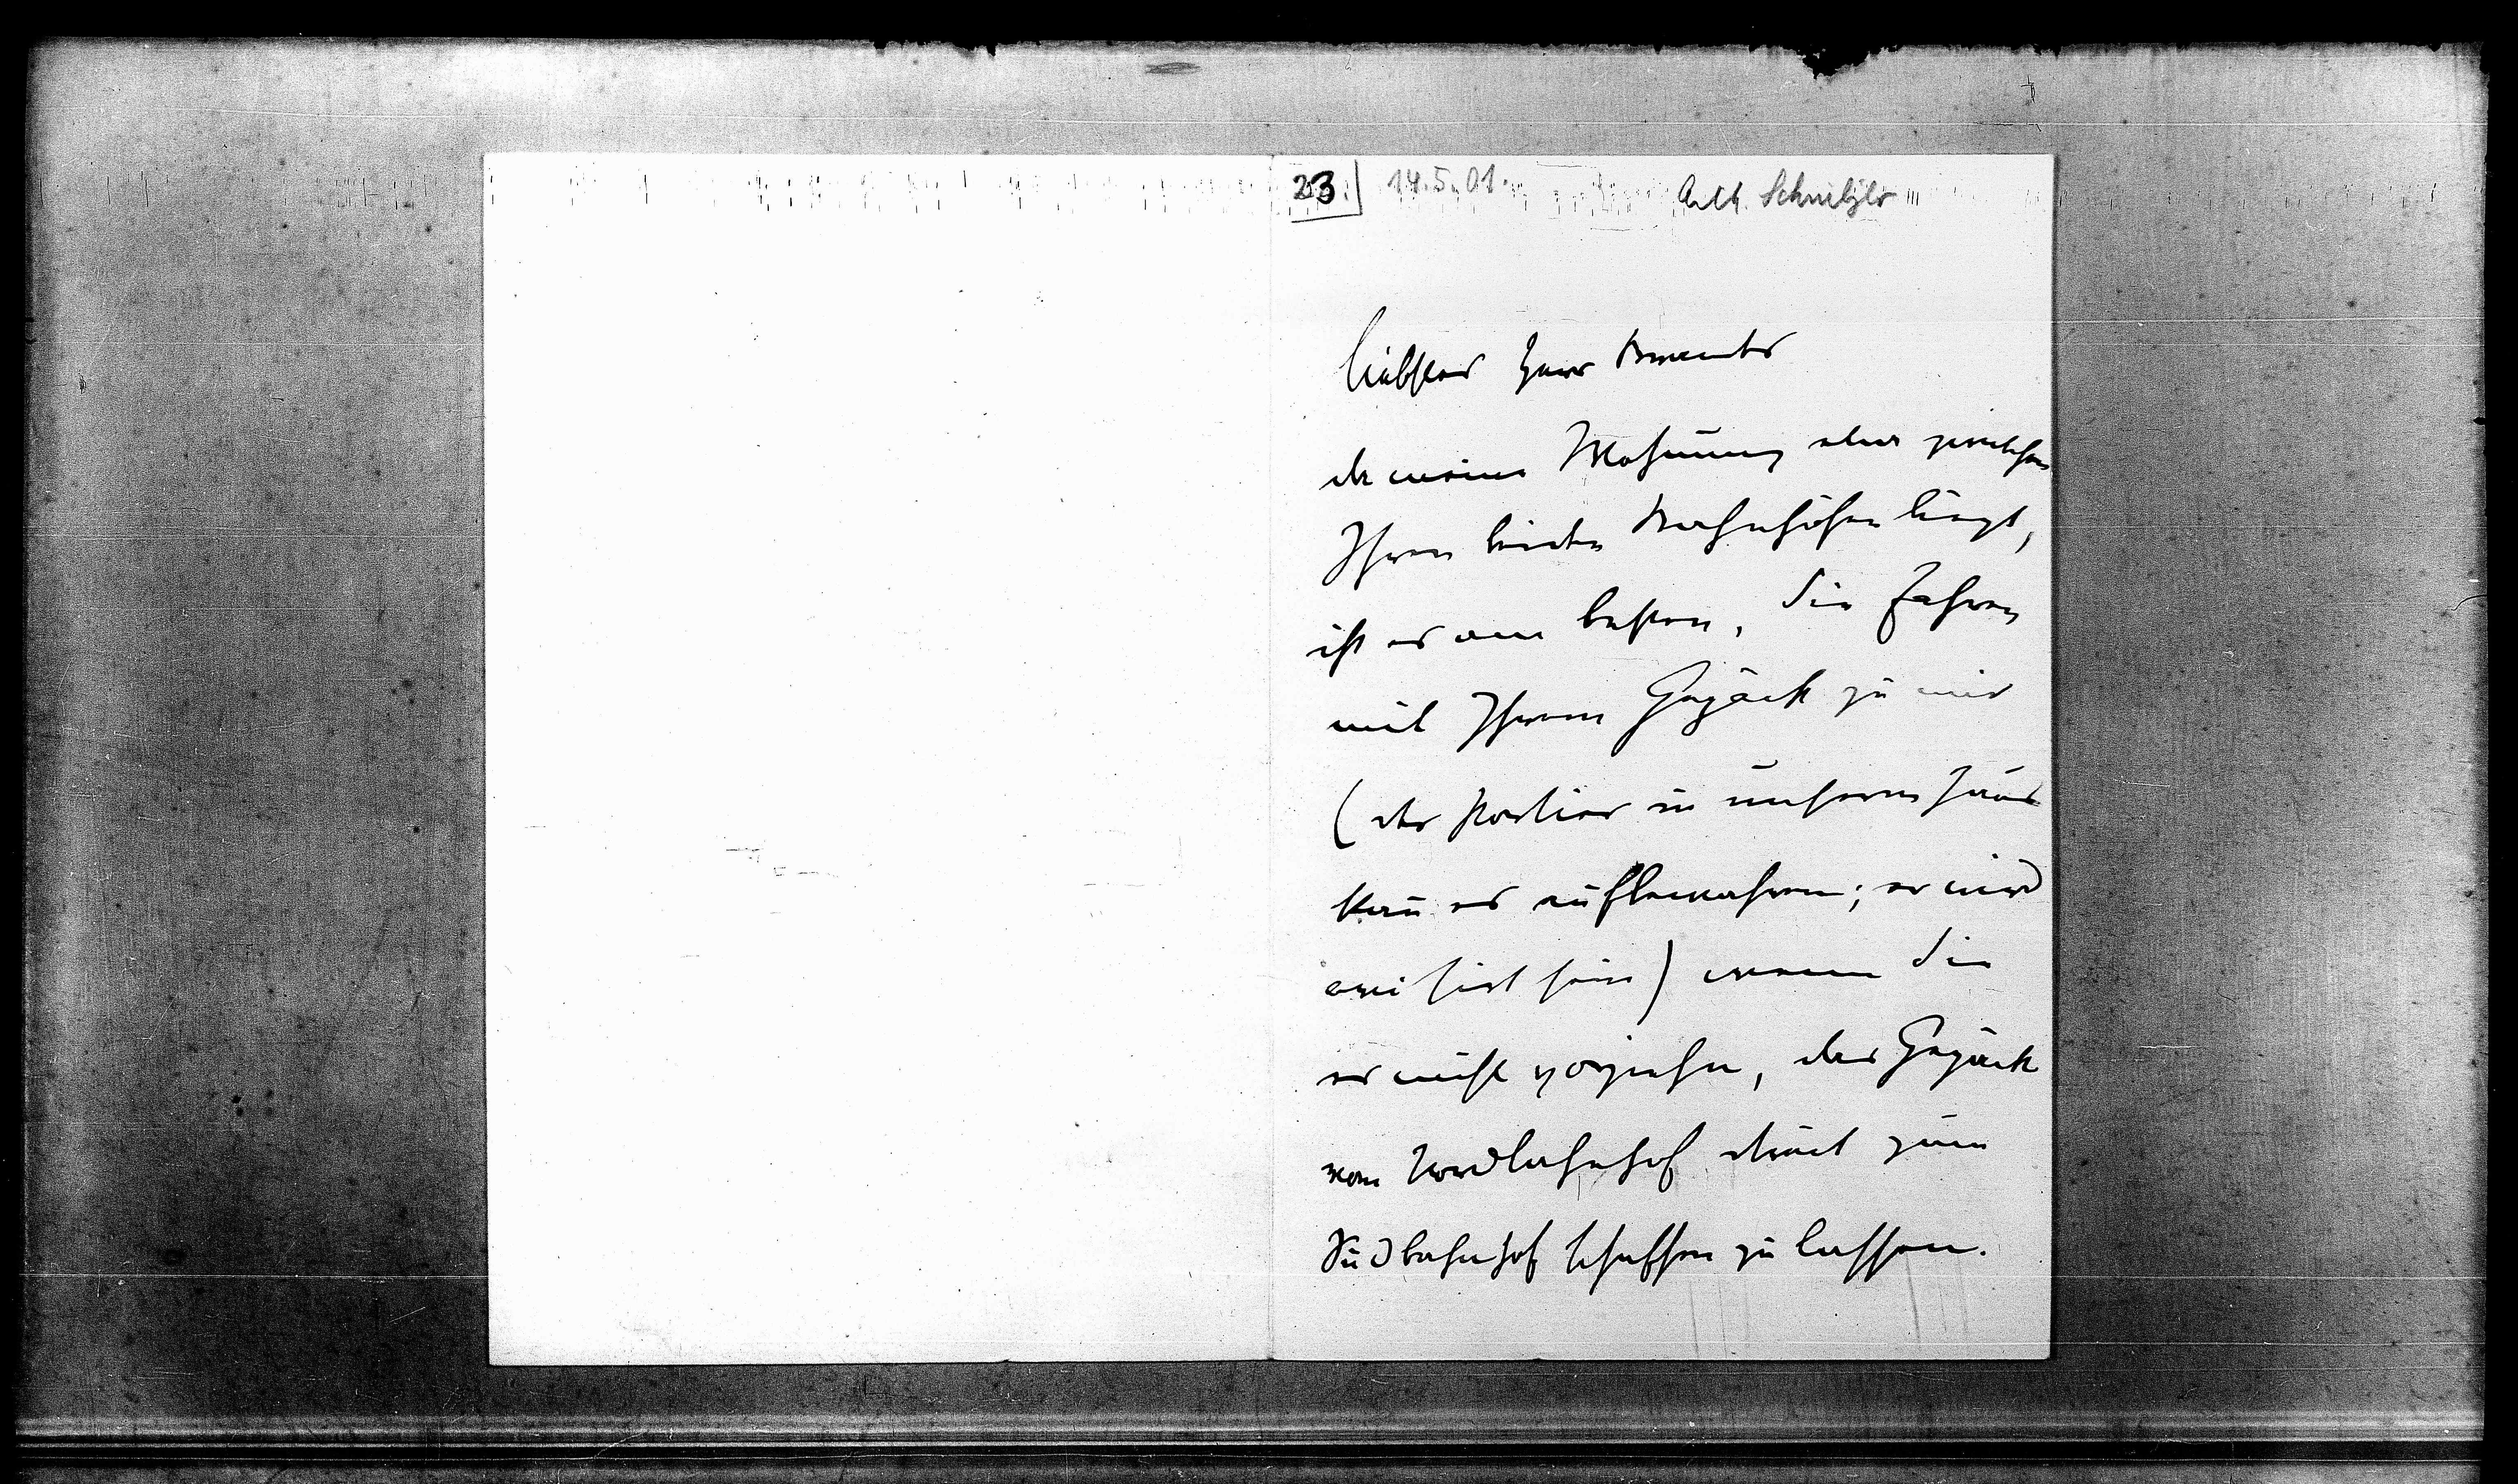 23. 14.5.01. Arth. Schnitzler
liebster Herr Brandes
da meine Wohnung eben zwischen
Ihren beiden Bahnhöfen liegt,
ist es am besten, Sie fahren
mit Ihrem Gepäck zu mir
(der Portier in unserm Haus
kan̄ es aufbewahren; er wird
avisirt sein) wenn Sie
es nicht vorziehen, das Gepäck
vom Nordbahnhof direct zum
Südbahnhof schaffen zu lassen.